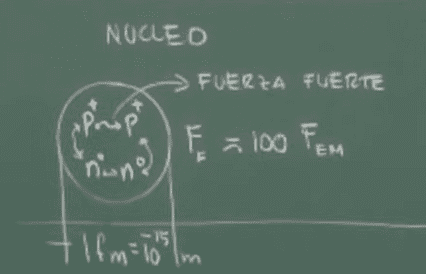 NUCLEO
FUERZA FUERTE
P⁺ P⁺
n° n°
F_F ≈ 100 F_EM
1 fm = 10⁻¹⁵ m